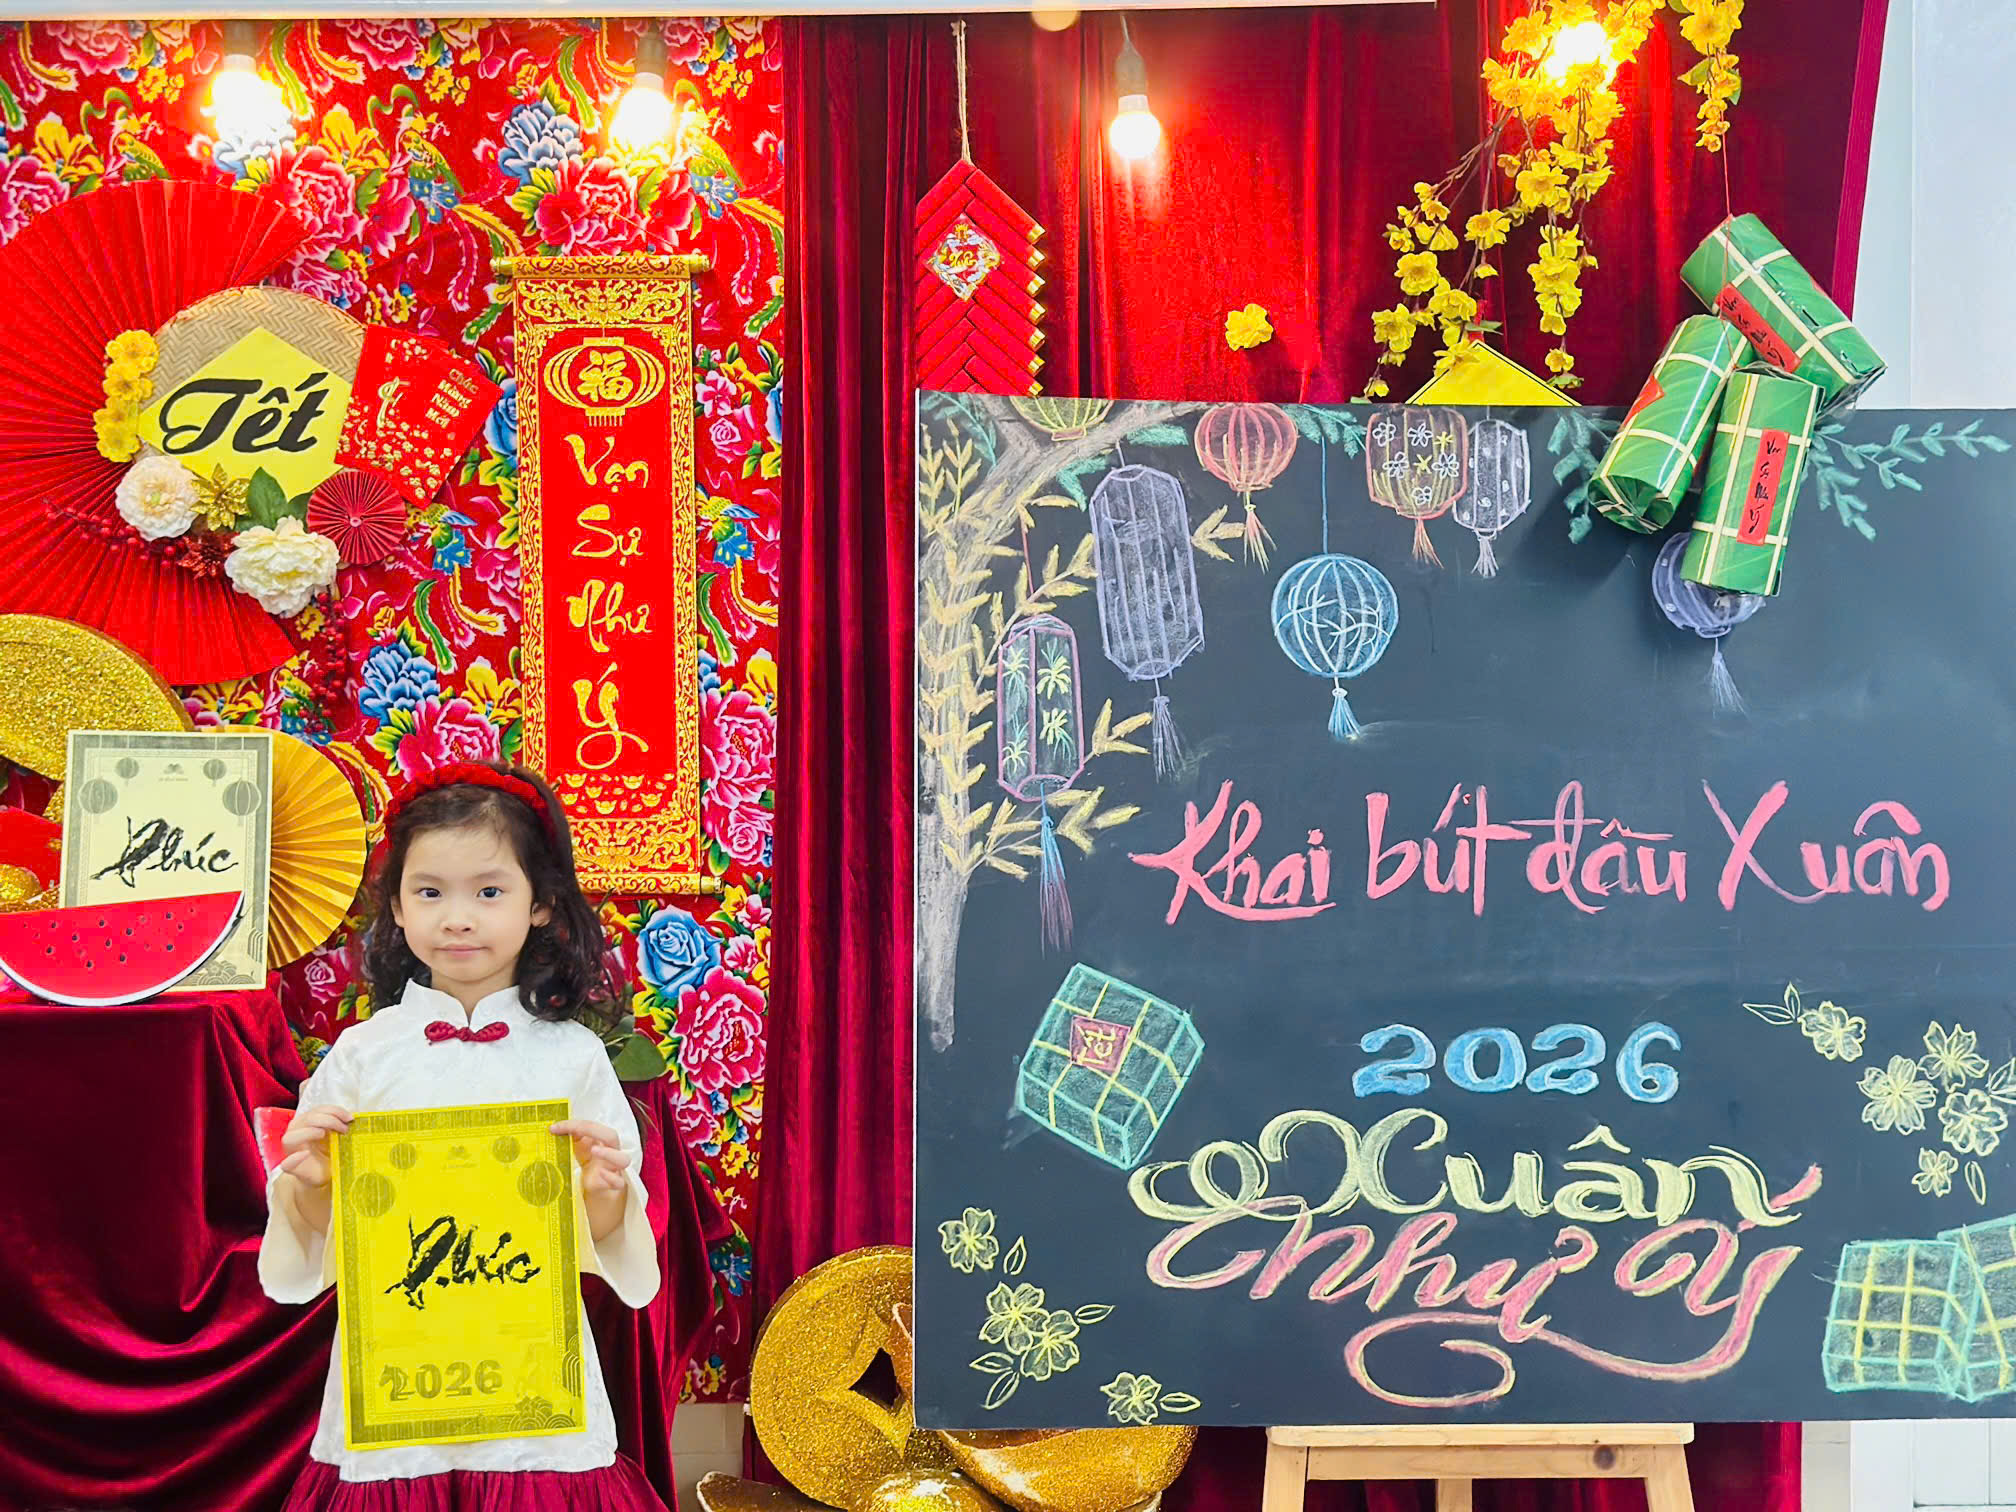 Tết
Chúc
Mừng
Năm
Mới
福
Vạn
Sự
Như
Ý
Phúc
Phúc
2026
Khai bút đầu Xuân
Tết
2026
Xuân
Như Ý